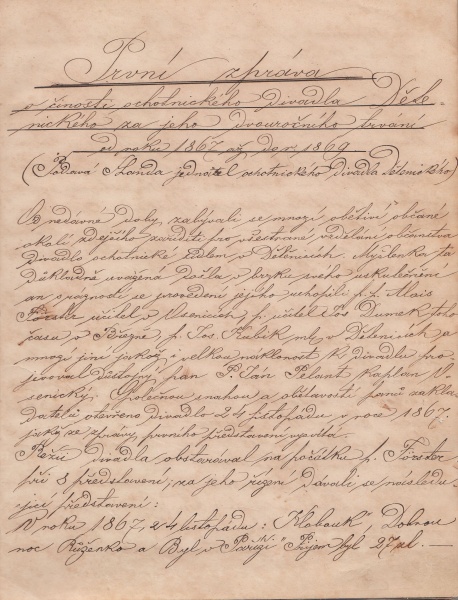 První zpráva
o činosti ochotnického Divadla Děte-
nického za jeho dvouročního trvání
od roku 1867 až do r 1869
(Podává Řanda jednatel ochotnického Divadla Dětenického)
Od nedávné doby, zabývali se mnozí obětiví občané
okolí zdejšího zaříditi pro všestrané vzdělání občanstva
Divadlo ochotnické Zdem v Dětenicích. Myšlenka ta
Důkladně uvážená došla v brzku svého uskutečnění
an s vážností se provedení jejího uchopili p. p. Alois
učitel v Osenicích, p. učitel Jos Dumek toho
času v Březně p. Jos. Kubik ml. v Dětenicích a
mnozí jiní jakož i velkou náklonost k divadlu pro-
jevoval Důstojný pan P. Ján Pelant kaplan O-
senický. Společnou snahou a obětavostí panů zakla-
datelů otevřeno divadlo 24 listopadu v roce 1867.
jak ze zprávy prvního představení vysvítá.
Režii divadla obstarával na počátku p. Förster
při 8 představení; za jeho řízení dávali se násle­du-
jící představení:
V roku 1867, 24 listopadu: „Klobouk", Dobrou
noc Růženko a Byl v Paříži" Příjem byl 27 zl. —